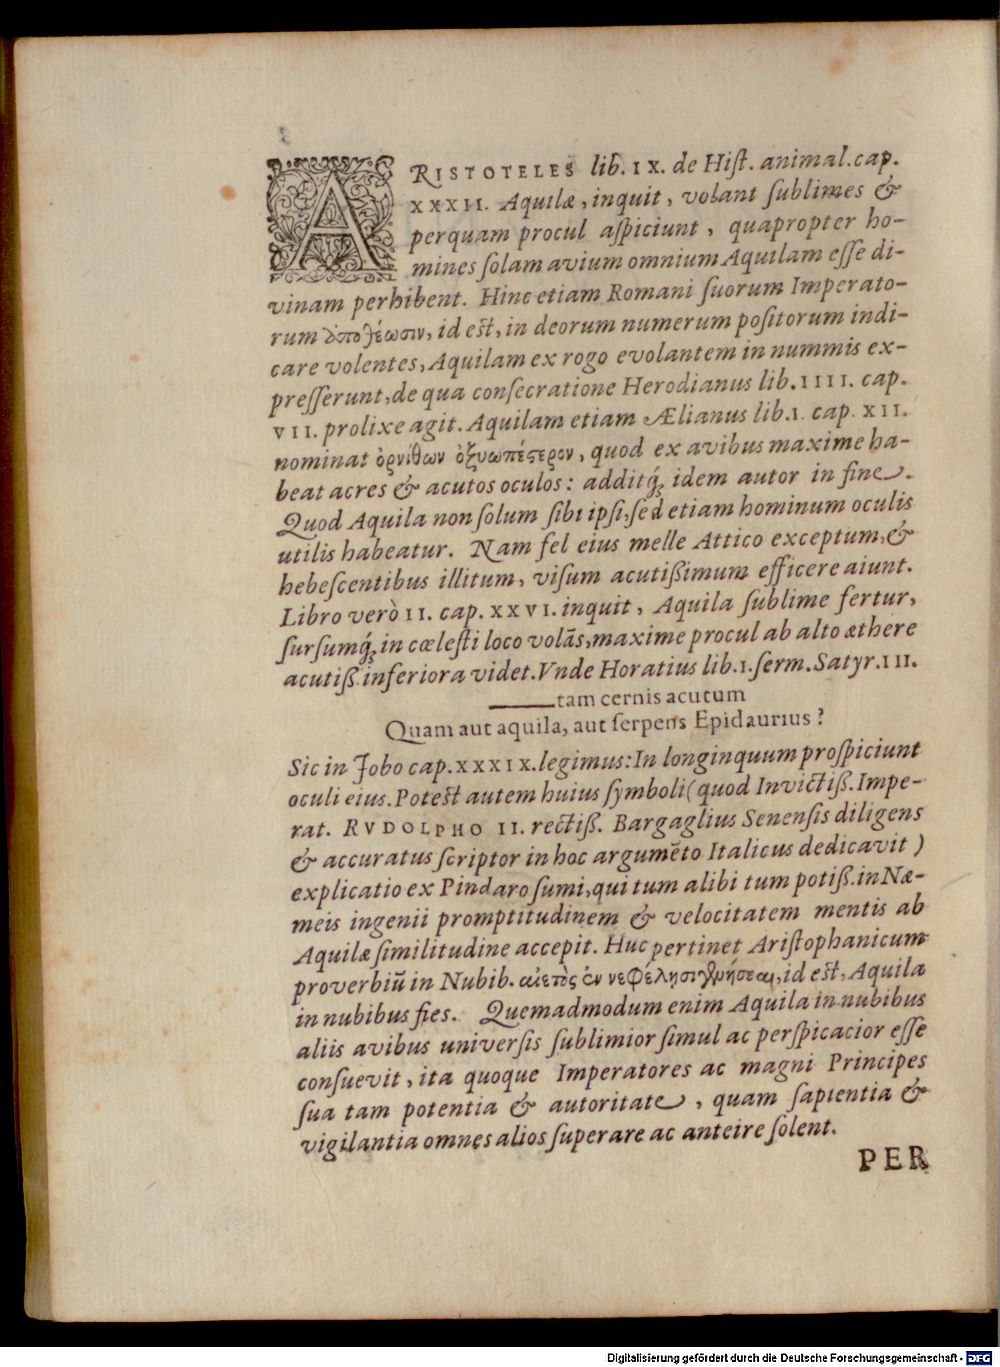 ARISTOTELES lib. IX. de Hiſt. animal. cap.
XXXII. Aquilæ, inquit, volant ſublimes &
perquam procul aſpiciunt, quapropter ho-
mines ſolam avium omnium Aquilam eſſe di-
vinam perhibent. Hinc etiam Romani ſuorum Imperato-
rum ἀποθέωσιν, id eſt, in deorum numerum poſitorum indi-
care volentes, Aquilam ex rogo evolantem in nummis ex-
preſſerunt, de qua conſecratione Herodianus lib. IIII. cap.
VII. prolixe agit. Aquilam etiam Ælianus lib. I. cap. XII.
nominat ὀρνίθων ὀξυωπέςερον, quod ex avibus maxime ha-
beat acres & acutos oculos: additq́; idem autor in fine.
Quod Aquila non ſolum ſibi ipſi, ſed etiam hominum oculis
utilis habeatur. Nam fel eius melle Attico exceptum, &
hebeſcentibus illitum, viſum acutißimum efficere aiunt.
Libro verò II. cap. XXVI. inquit, Aquila ſublime fertur,
ſurſumq́; in cœleſti loco volãs, maxime procul ab alto æthere
acutiß. inferiora videt. Vnde Horatius lib. I. ſerm. Satyr. III.
——tam cernis acutum
Quam aut aquila, aut ſerpens Epidaurius?
Sic in Jobo cap. XXXIX. legimus: In longinquum proſpiciunt
oculi eius. Poteſt autem huius ſymboli (quod Invictiß. Impe-
rat. RVDOLPHO II. rectiß. Bargaglius Senenſis diligens
& accuratus ſcriptor in hoc argumẽto Italicus dedicavit)
explicatio ex Pindaro ſumi, qui tum alibi tum potiß. in Næ-
meis ingenii promptitudinem & velocitatem mentis ab
Aquilæ ſimilitudine accepit. Huc pertinet Ariſtophanicum
proverbiũ in Nubib. αἰετὸς ἐν νεφέλησι γενήσεαι, id eſt, Aquila
in nubibus fies. Quemadmodum enim Aquila in nubibus
aliis avibus univerſis ſublimior ſimul ac perſpicacior eſſe
conſuevit, ita quoque Imperatores ac magni Principes
ſua tam potentia & autoritate, quam ſapientia &
vigilantia omnes alios ſuperare ac anteire ſolent.
PER
Digitalisierung gefördert durch die Deutsche Forschungsgemeinschaft - DFG